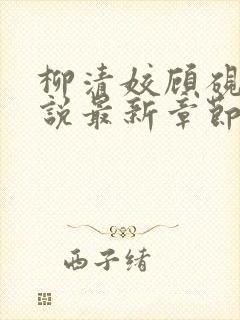 柳清姣顾砚
说最新章节
西子绪